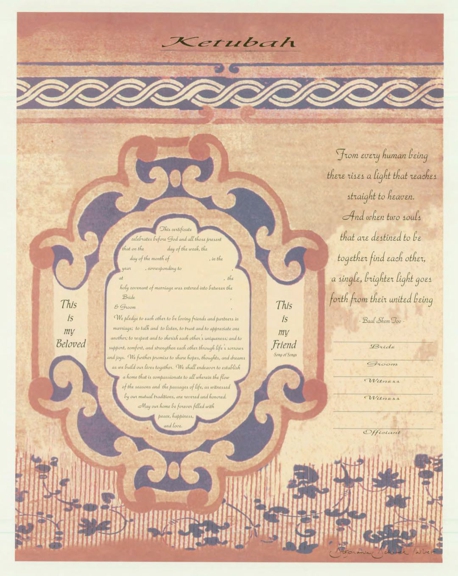 Ketubah
This certificate
celebrates before God and all those present
that on the day of the week, the
day of the month of , in the
year , corresponding to
at , the
holy covenant of marriage was entered into between the
Bride
& Groom
We pledge to each other to be loving friends and partners in
marriage, to talk and to listen, to trust and to appreciate one
another, to respect and to cherish each other's uniqueness, and to
support, comfort, and strengthen each other through life's sorrows
and joys. We further promise to share hopes, thoughts, and dreams
as we build our lives together. We shall endeavor to establish
a home that is compassionate to all wherein the flow
of the seasons and the passages of life, as witnessed
by our mutual traditions, are revered and honored.
May our home be forever filled with
peace, happiness,
and love.
This
is
my
Beloved
This
is
my
Friend
Song of Songs
From every human being
there rises a light that reaches
straight to heaven.
And when two souls
that are destined to be
together find each other,
a single, brighter light goes
forth from their united being
Baal Shem Tov
Bride
Groom
Witness
Witness
Officiant